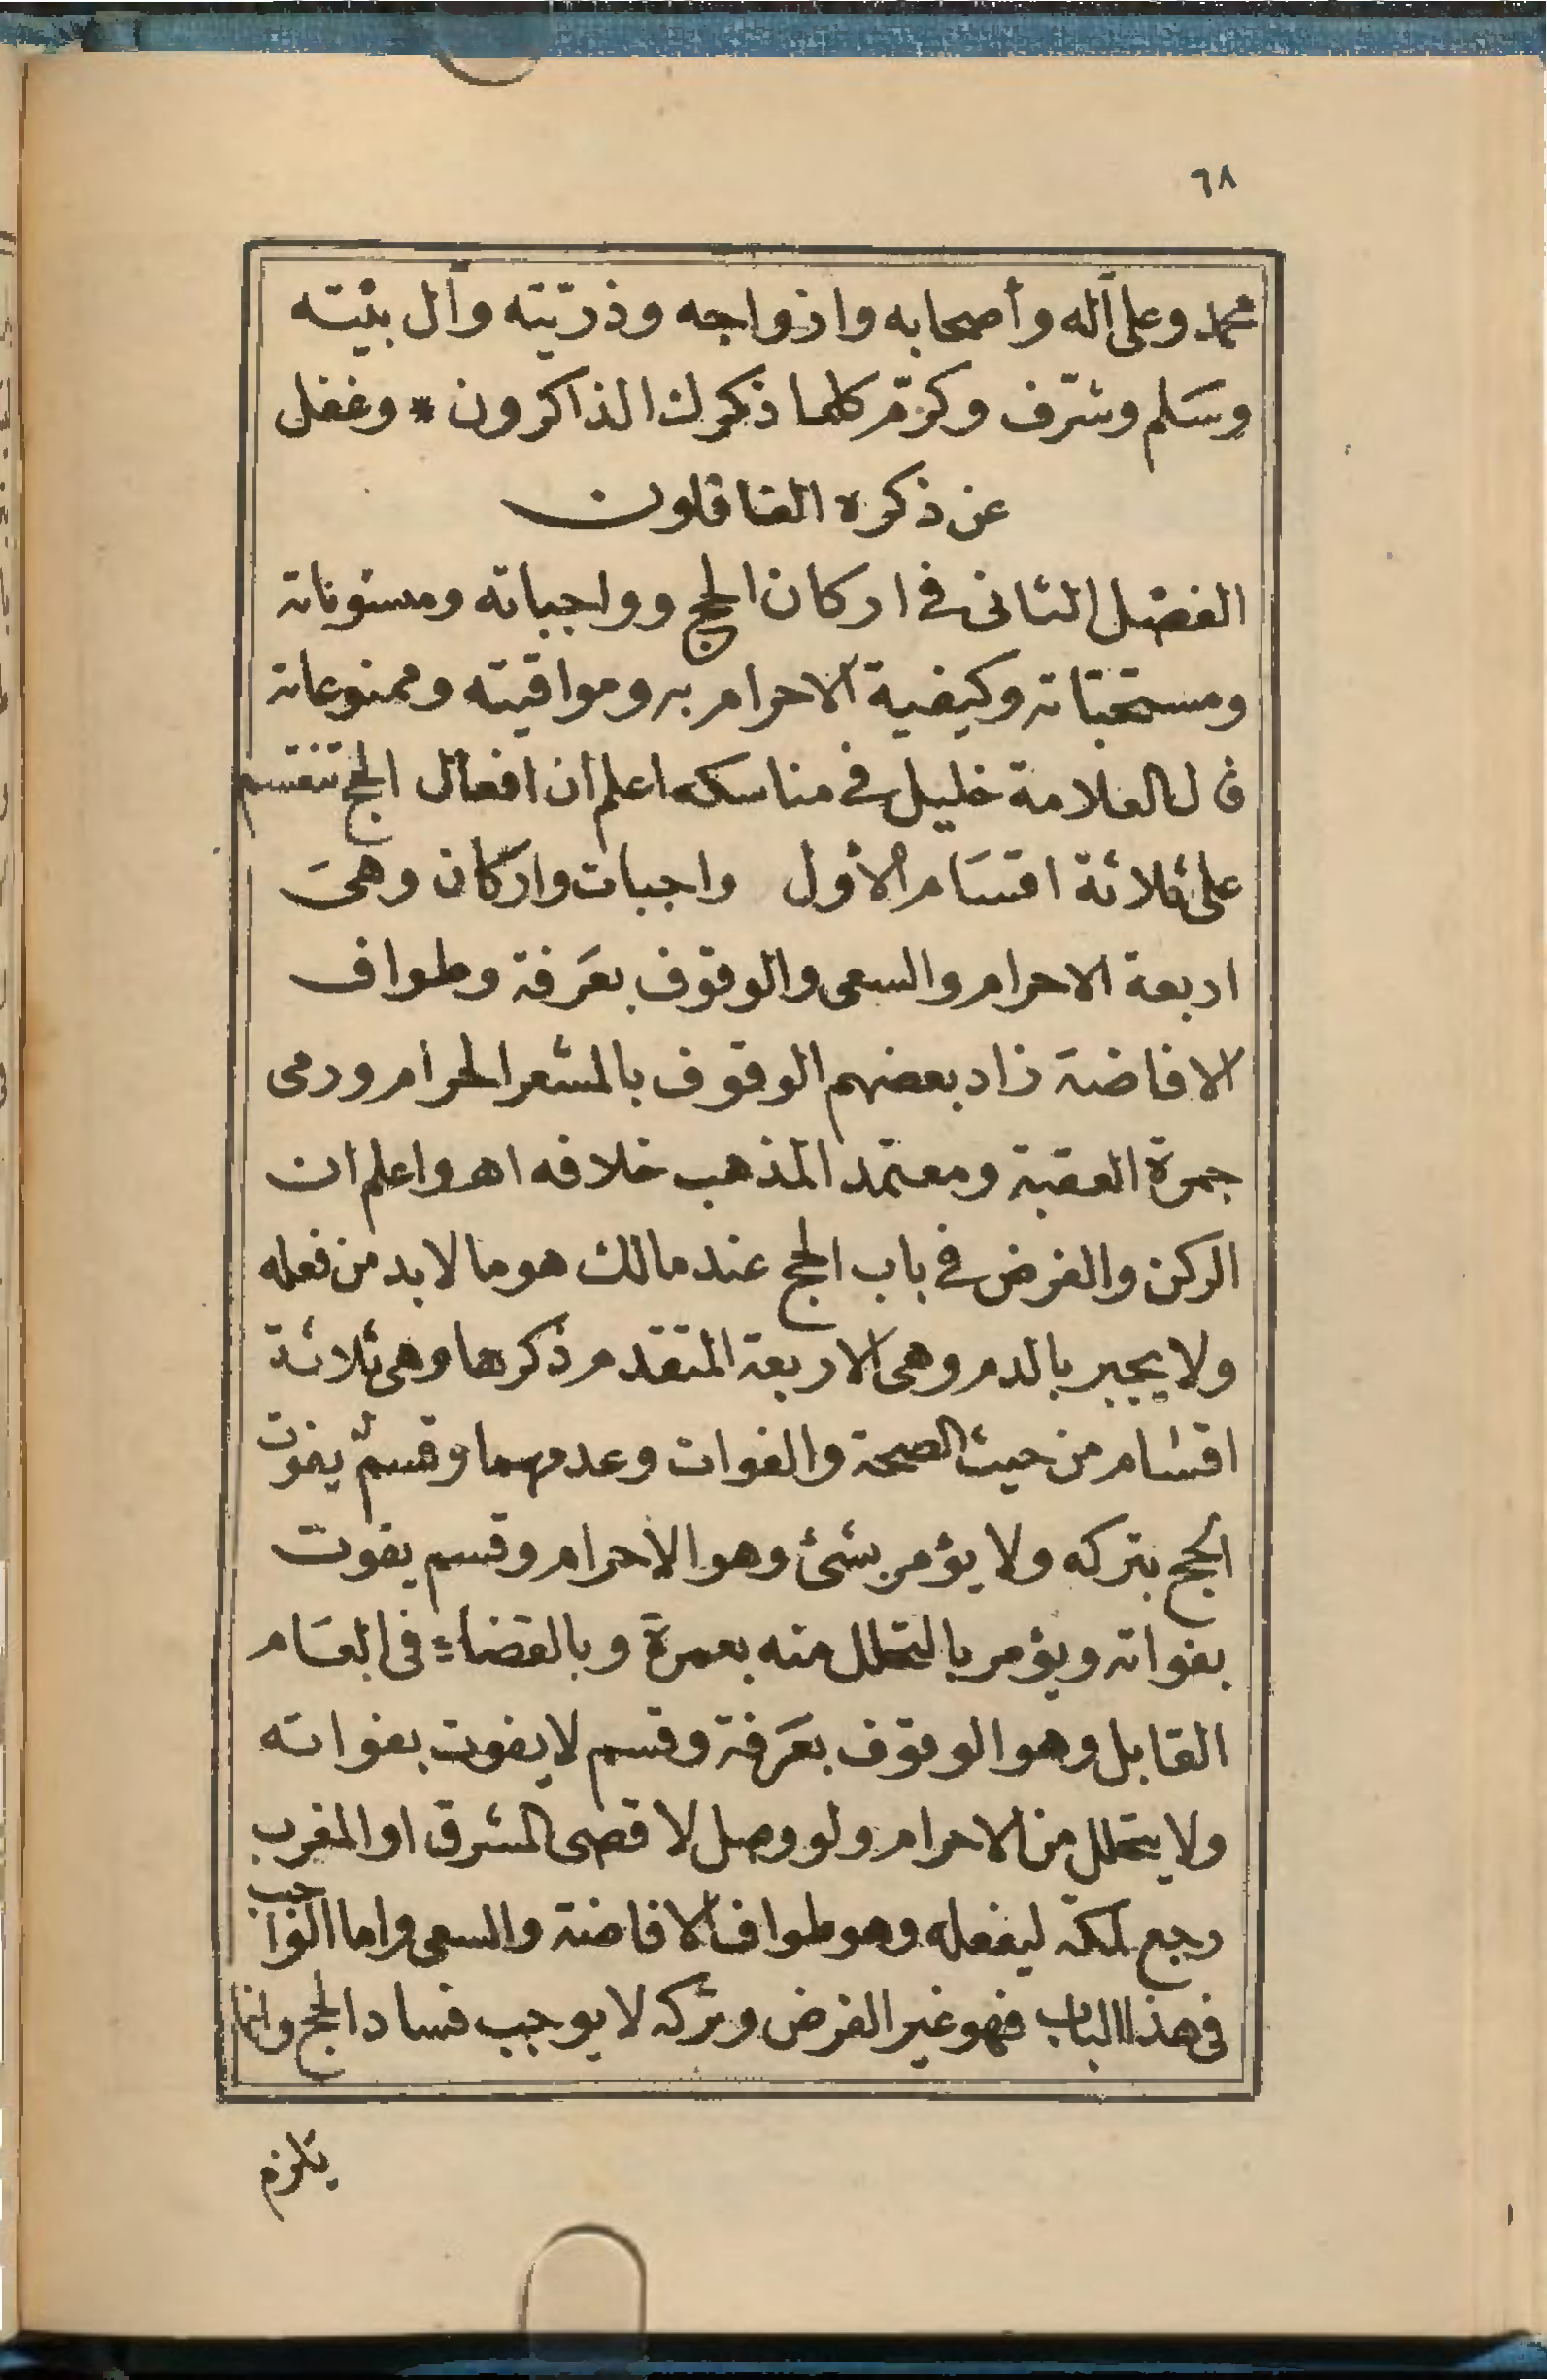 ٦٨
محمد وعلى آله وأصحابه وازواجه وذرّيّته وآل بيْته
وسَلم وشرّف وكرّم كلما ذكرك الذاكرون * وغفل
عن ذكره الغافلون
الفصْل الثانى فى اركان الحج وواجباته ومسنوناته
ومستحبّاته وكيفية الاحرام به ومواقيته وممنوعاته
قال العلامة خليل فى مناسكه اعلم ان افعال الحج تنقسم
على ثلاثة اقسَام الأول واجبات واركان وهىَ
اربعة الاحرام والسعى والوقوف بعَرفة وطواف
الافاضة زاد بعضهم الوقوف بالمشعر الحرام ورمى
جمرة العقبة ومعتمد المذهب خلافه اهـ واعلم ان
الركن والفرض فى باب الحج عند مالك هو ما لا بد من فعله
ولا يجبر بالدم وهى الاربعة المتقدم ذكرها وهى ثلاثة
اقسَام من حيث الصحة والفوات وعدمهما وقسم يفوت
الحج بتركه ولا يؤمر بشئ وهو الاحرام وقسم يفوت
بفواته ويؤمر بالتحلل منه بعمرة وبالقضاء فى العَام
القابل وهو الوقوف بعَرفة وقسم لا يفوت بفواته
ولا يتحلل من الاحرام ولو وصل لاقصى المشرق او المغرب
رجع لمكة ليفعله وهو طواف الافاضة والسعى واما الواجب
فى هذا الباب فهو غير الفرض وتركه لا يوجب فساد الحج وانما
يلزم